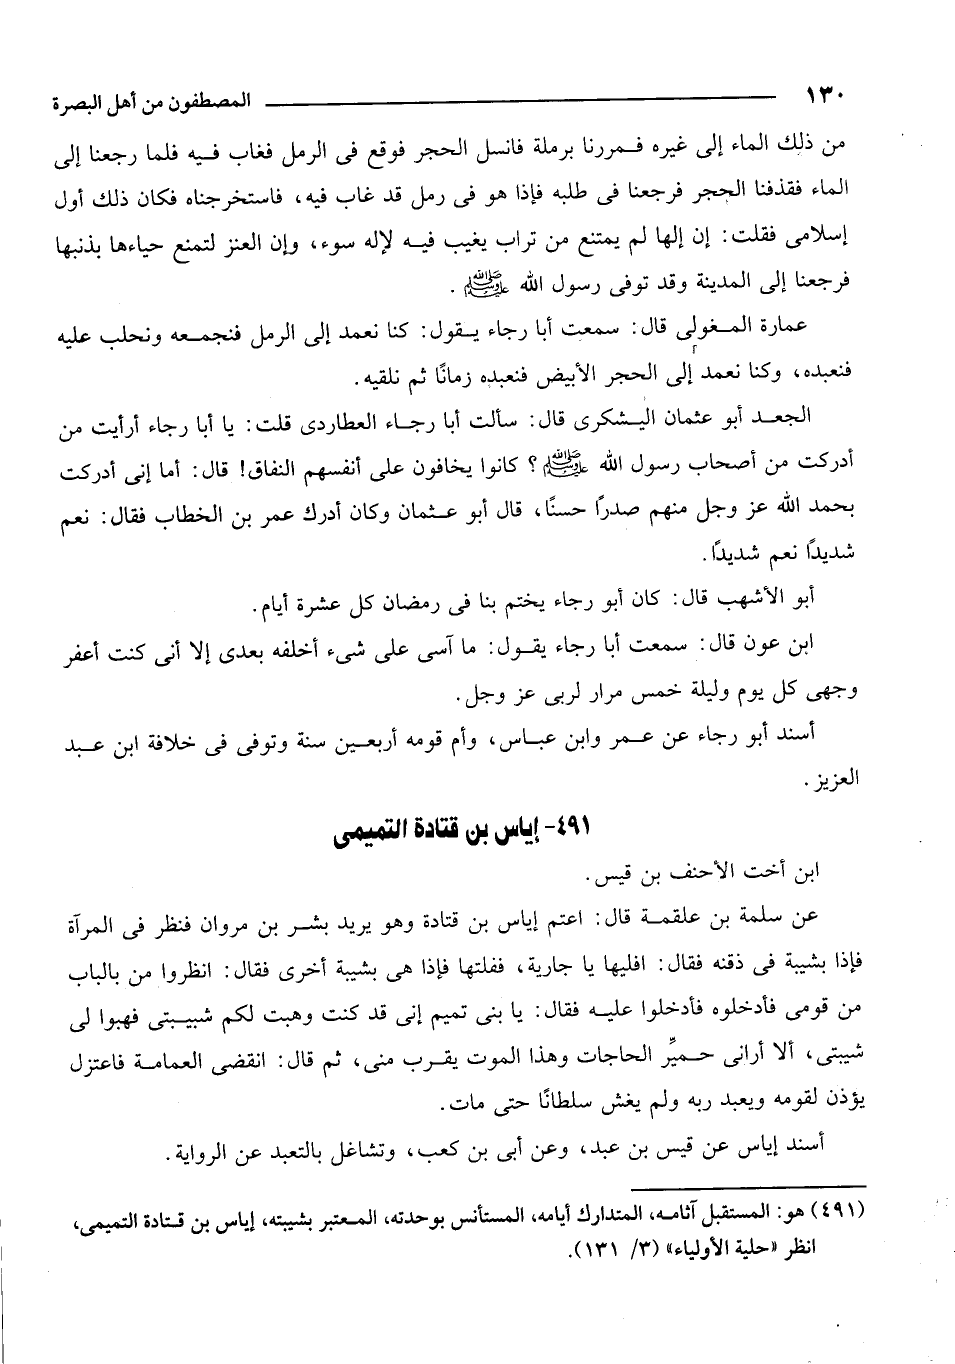 ١٣٠ المصطفون من أهل البصرة
من ذلك الماء إلى غيره فمررنا برملة فانسل الحجر فوقع فى الرمل فغاب فيه فلما رجعنا إلى
الماء فقذفنا الحجر فرجعنا فى طلبه فإذا هو فى رمل قد غاب فيه، فاستخرجناه فكان ذلك أول
إسلامى فقلت: إن إلها لم يمتنع من تراب يغيب فيه لإله سوء، وإن العنز لتمنع حياءها بذنبها
فرجعنا إلى المدينة وقد توفى رسول الله ﷺ .
عمارة المغولى قال: سمعت أبا رجاء يقول: كنا نعمد إلى الرمل فنجمعه ونحلب عليه
فنعبده، وكنا نعمد إلى الحجر الأبيض فنعبده زمانًا ثم نلقيه.
الجعد أبو عثمان اليشكرى قال: سألت أبا رجاء العطاردى قلت: يا أبا رجاء أرأيت من
أدركت من أصحاب رسول الله ﷺ؟ كانوا يخافون على أنفسهم النفاق! قال: أما إنى أدركت
بحمد الله عز وجل منهم صدرًا حسنًا، قال أبو عثمان وكان أدرك عمر بن الخطاب فقال: نعم
شديدًا نعم شديدًا.
أبو الأشهب قال: كان أبو رجاء يختم بنا فى رمضان كل عشرة أيام.
ابن عون قال: سمعت أبا رجاء يقول: ما آسى على شىء أخلفه بعدى إلا أنى كنت أعفر
وجهى كل يوم وليلة خمس مرار لربى عز وجل.
أسند أبو رجاء عن عمر وابن عباس، وأم قومه أربعين سنة وتوفى فى خلافة ابن عبد
العزيز .
٤٩١- إياس بن قتادة التميمى
ابن أخت الأحنف بن قيس.
عن سلمة بن علقمة قال: اعتم إياس بن قتادة وهو يريد بشر بن مروان فنظر فى المرآة
فإذا بشيبة فى ذقنه فقال: افليها يا جارية، ففلتها فإذا هى بشيبة أخرى فقال: انظروا من بالباب
من قومى فأدخلوه فأدخلوا عليه فقال: يا بنى تميم إنى قد كنت وهبت لكم شبيبتى فهبوا لى
شيبتى، ألا أرانى حميِّر الحاجات وهذا الموت يقرب منى، ثم قال: انقضى العمامة فاعتزل
يؤذن لقومه ويعبد ربه ولم يغش سلطانًا حتى مات.
أسند إياس عن قيس بن عبد، وعن أبى بن كعب، وتشاغل بالتعبد عن الرواية.
(٤٩١) هو: المستقبل آثامه، المتدارك أيامه، المستأنس بوحدته، المعتبر بشيبته، إياس بن قتادة التميمى،
انظر «حلية الأولياء» (٣/ ١٣١).